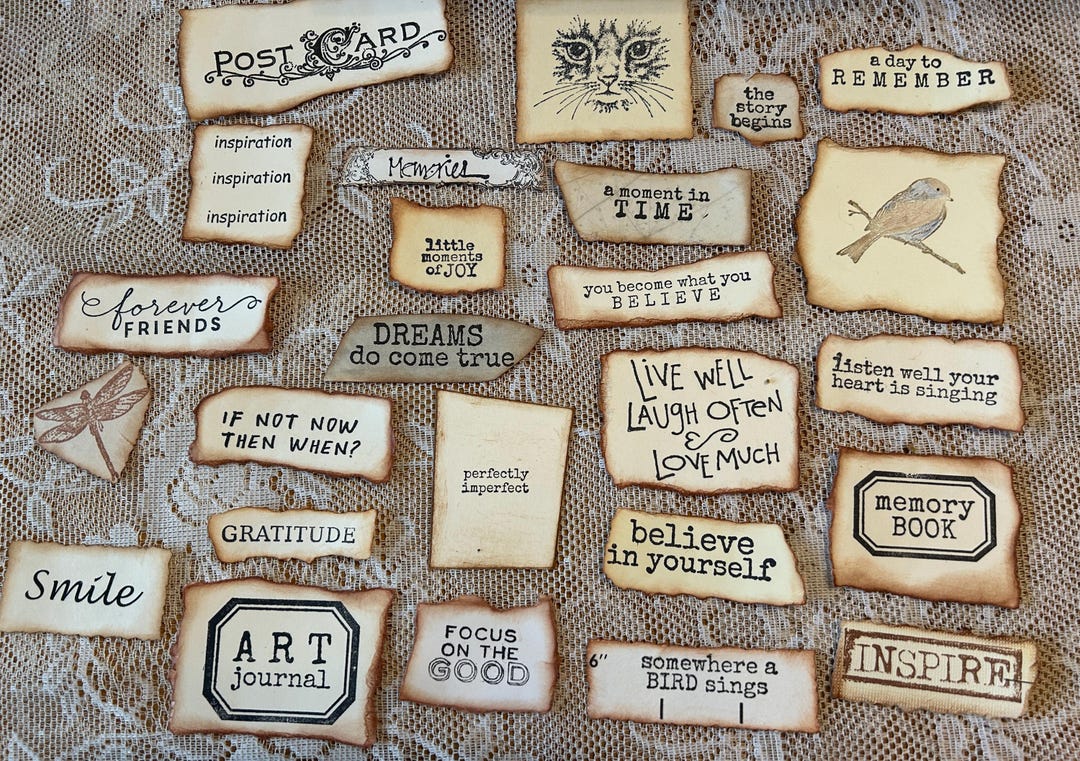 POST CARD
the
story
begins
a day to
REMEMBER
inspiration
inspiration
inspiration
Memories
a moment in
TIME
little
moments
of JOY
you become what you
BELIEVE
forever
FRIENDS
DREAMS
do come true
LIVE WELL
LAUGH OFTEN
&
LOVE MUCH
listen well your
heart is singing
IF NOT NOW
THEN WHEN?
perfectly
imperfect
memory
BOOK
GRATITUDE
believe
in yourself
Smile
ART
journal
FOCUS
ON THE
GOOD
6" somewhere a
BIRD sings
INSPIRE